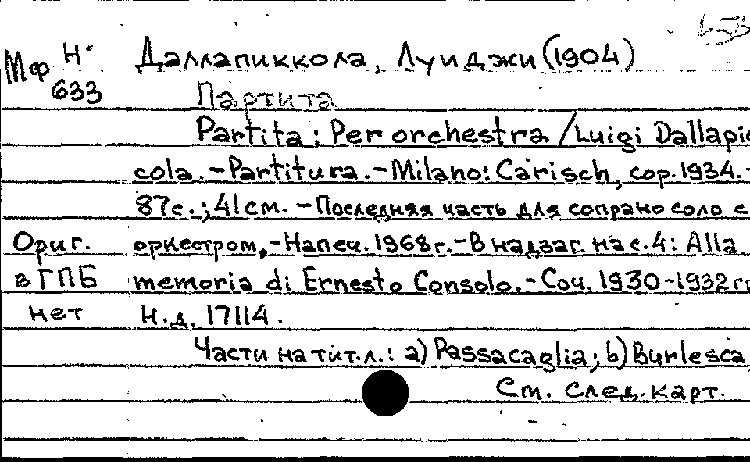 Мф Н·
633
Даллапиккола, Луиджи (1904)
Партита
Partita: Per orchestra / Luigi Dallapic
cola. – Partitura. – Milano: Carisch, cop. 1934. –
87с.; 41см. – Последняя часть для сопрано соло с
Ориг. оркестром. – Напеч. 1968г. – В надзаг. на с. 4: Alla
в ГПБ memoria di Ernesto Consolo. – Соч. 1930-1932гг
нет Н.д. 17114.
Части на тит.л.: a) Passacaglia; b) Burlesca,
См. след. карт.